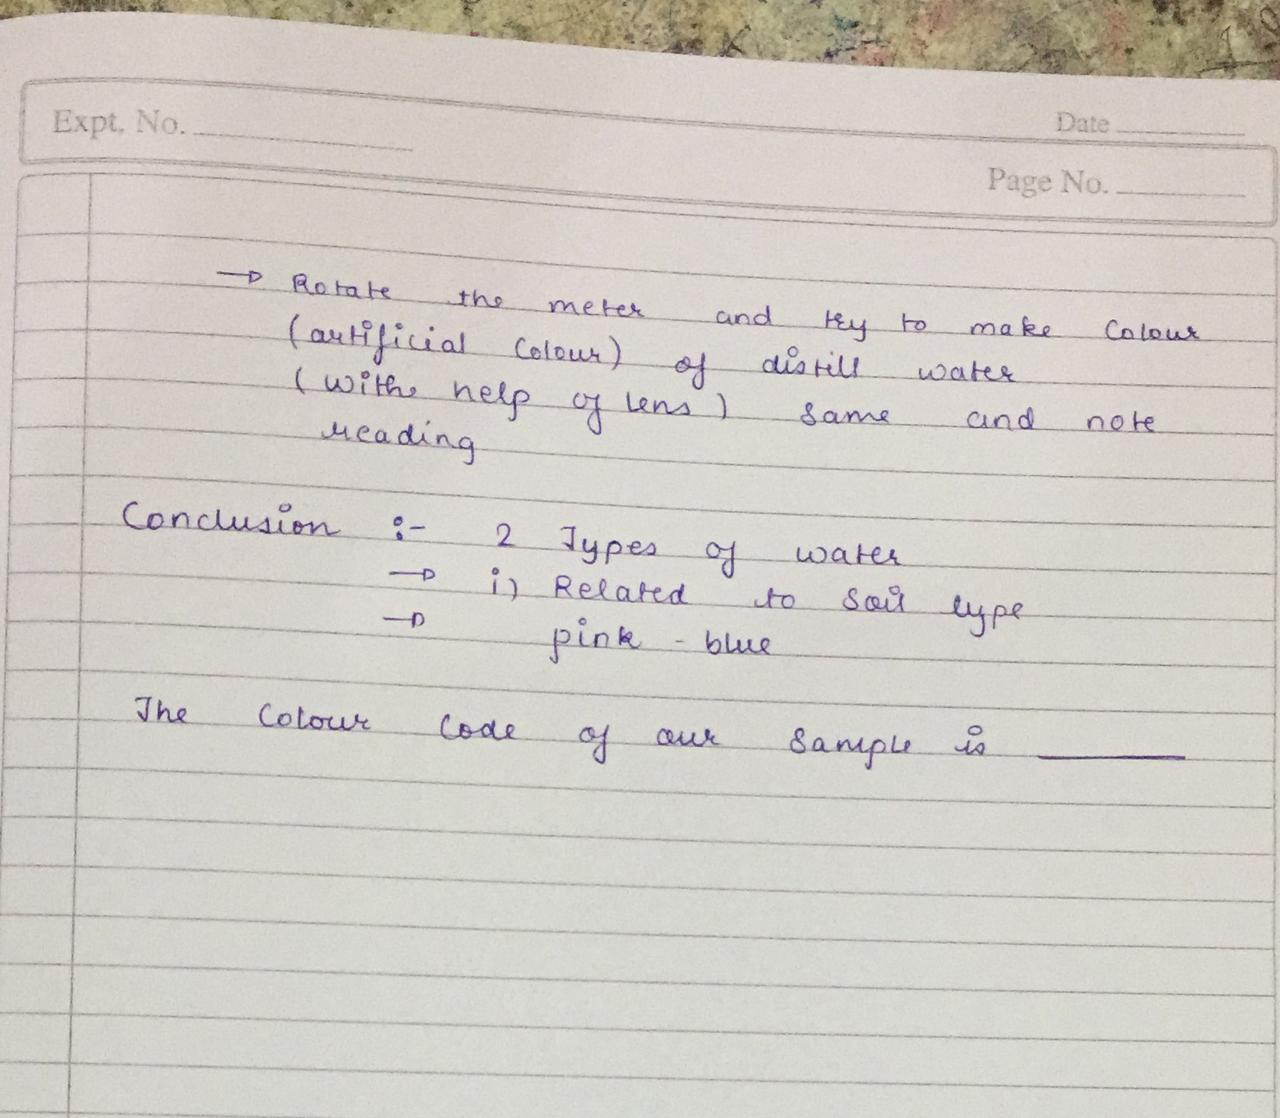 Expt. No.
Date
Page No.
→ Rotate the meter and try to make Colour
(artificial Colour) of distill water
(withe help of lens) same and note
reading
Conclusion :- 2 Types of water
→ i) Related to soil type
→ pink - blue
The Colour Code of our sample is